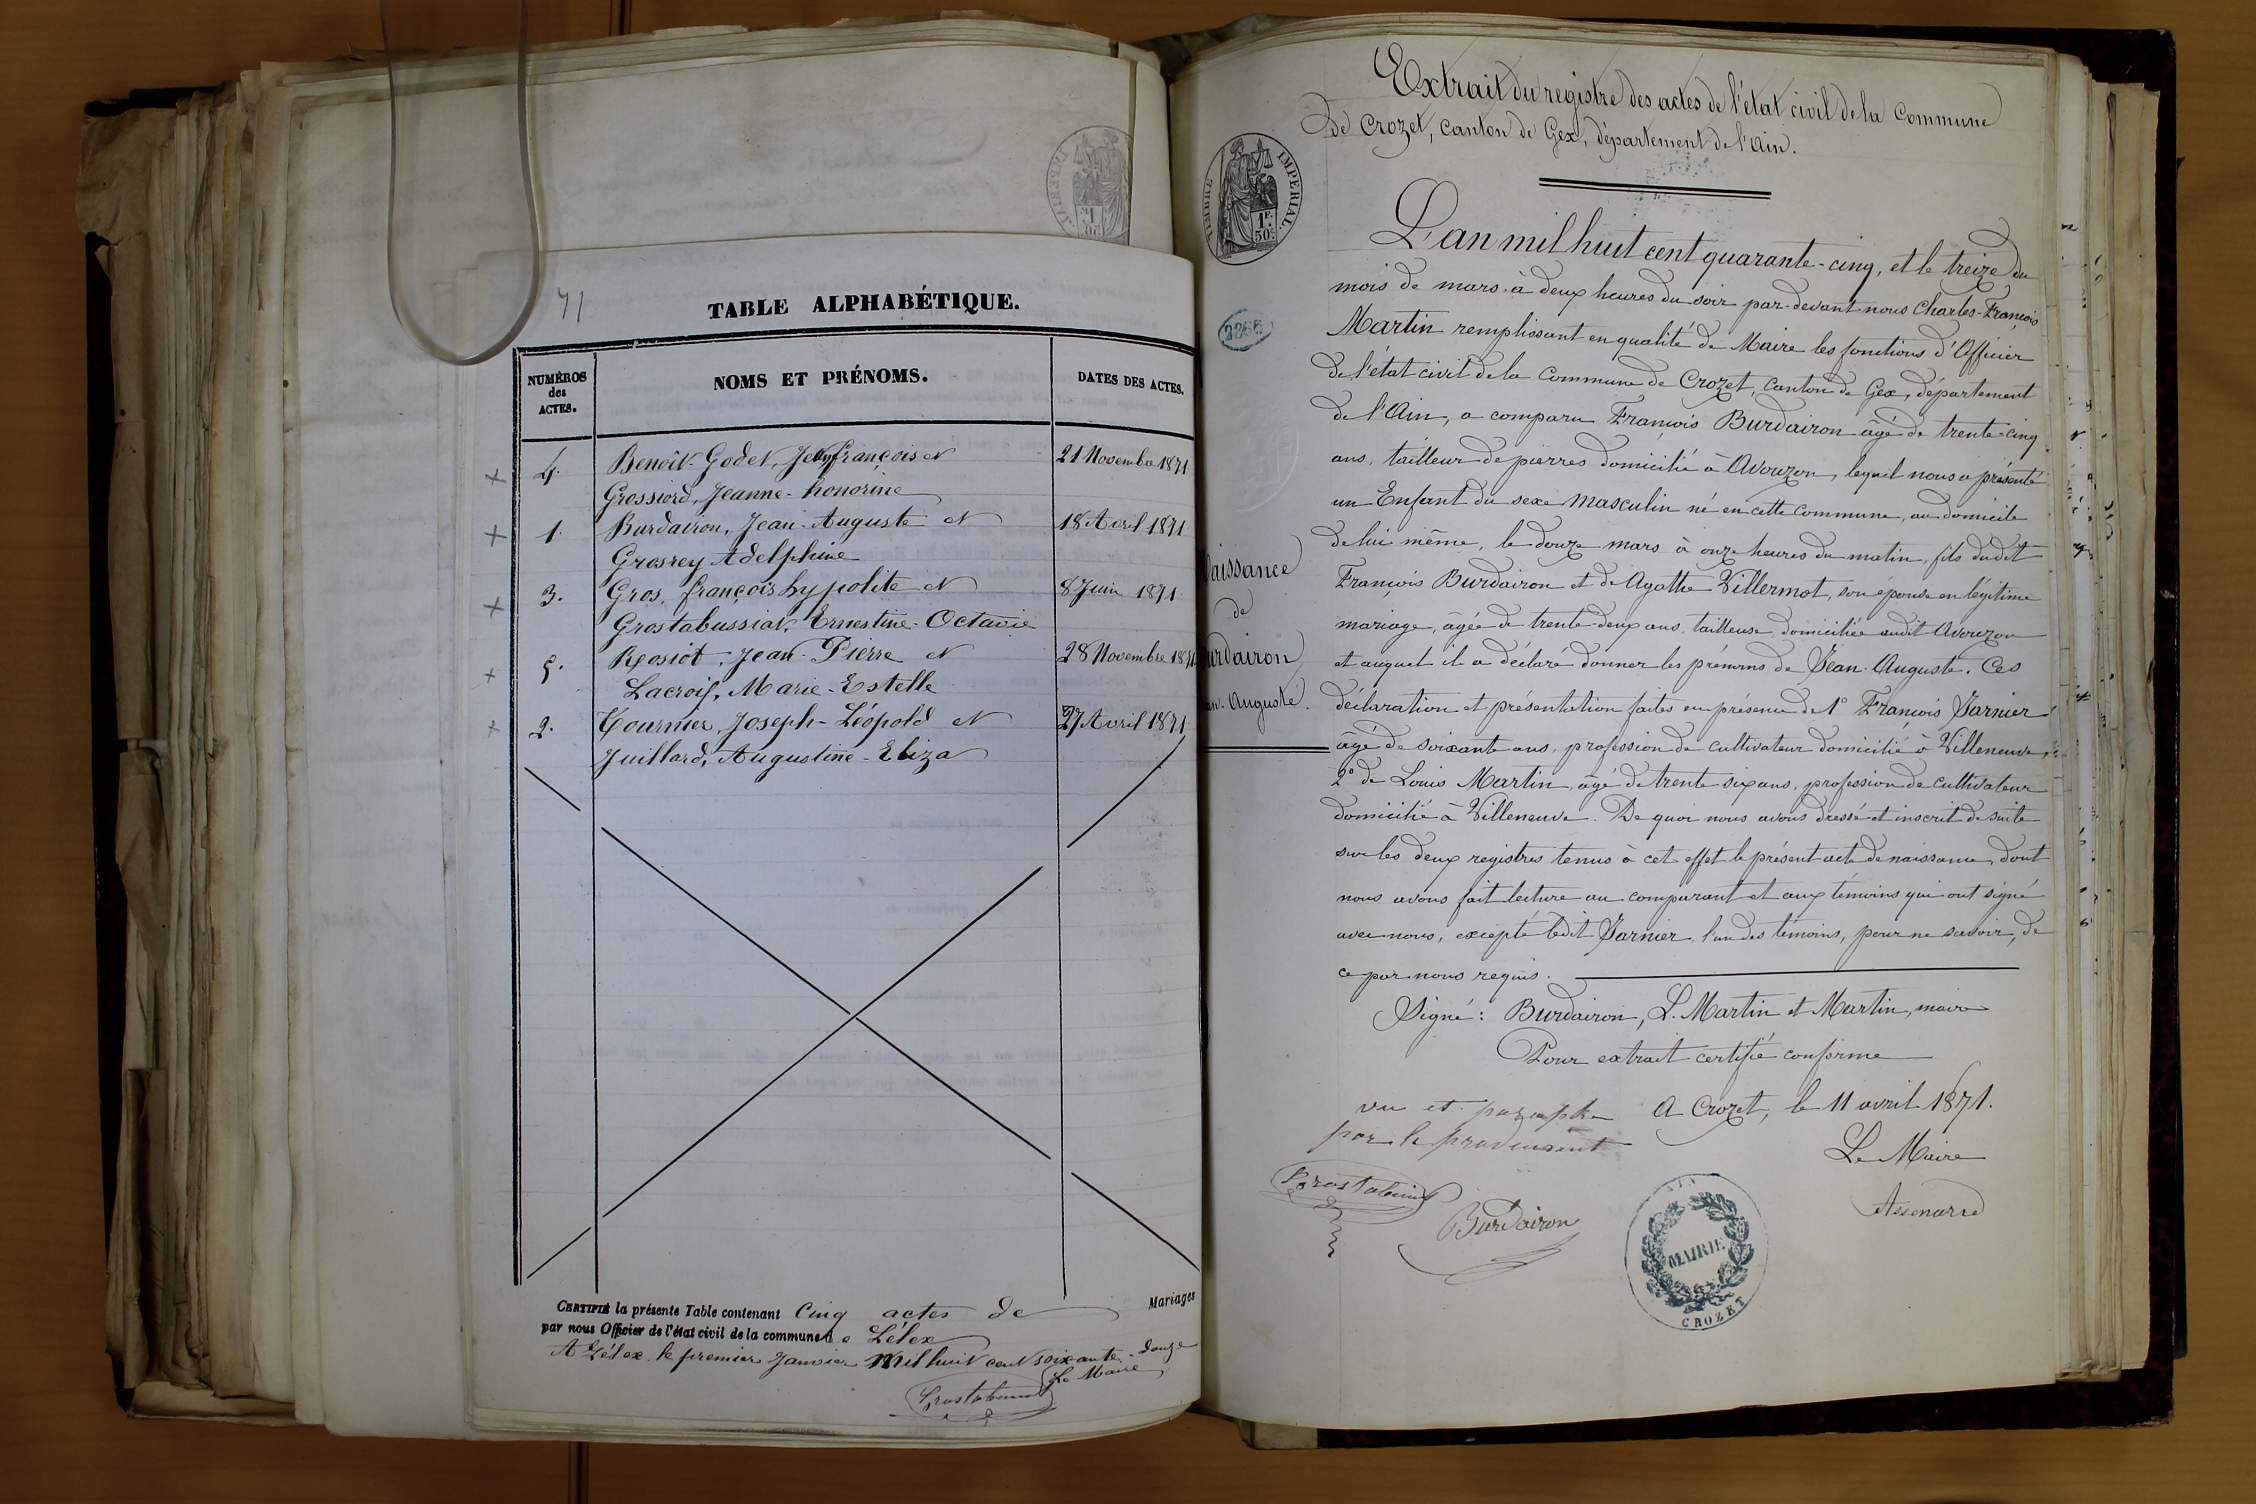 71
TABLE ALPHABÉTIQUE.
NUMÉROS
des
ACTES.
NOMS ET PRÉNOMS.
DATES DES ACTES.
4. Benoît-Godet, françois et 21 Novembre 1871
Grossiord, Jeanne-honorine
1. Burdairon, Jean-Auguste et 18 Avril 1871
Grosrey Adelphine
3. Gros, françois hypolite et 8 Juin 1871
Grostabussiat, Ernestine-Octavie
5. Rosiot, Jean-Pierre et 28 Novembre 1871
Lacroix, Marie-Estelle
2. Tournier, Joseph-Léopold et 27 Avril 1871
Juillard, Augustine-Eliza
CERTIFIÉ la présente Table contenant Cinq actes de Mariages
par nous Officier de l'état civil de la commune de Lélex
A Lélex, le premier Janvier Mil huit cent soixante-douze
Le Maire
Extrait du registre des actes de l'état civil de la Commune
de Crozet, Canton de Gex, département de l'Ain.
TIMBRE IMPERIAL
1F.
50c.
2266
L'an mil huit cent quarante-cinq, et le treize du
mois de mars à deux heures du soir par-devant nous Charles-François
Martin remplissant en qualité de Maire les fonctions d'Officier
de l'état civil de la Commune de Crozet, Canton de Gex, département
de l'Ain, a comparu François Burdairon âgé de trente-cinq
ans, tailleur de pierres domicilié à Avouzon, lequel nous a présenté
un Enfant du sexe masculin né en cette commune, au domicile
de lui-même, le douze mars à onze heures du matin, fils dudit
François Burdairon et de Agathe Villermot, son épouse en légitime
mariage, âgée de trente-deux ans, tailleuse, domiciliée audit Avouzon
et auquel il a déclaré donner les prénoms de Jean-Auguste. Ces
déclaration et présentation faites en présence de 1° François Jarnier
âgé de soixante ans, profession de cultivateur domicilié à Villeneuve,
2° de Louis Martin, âgé de trente six ans, profession de cultivateur
domicilié à Villeneuve. De quoi nous avons dressé et inscrit de suite
sur les deux registres tenus à cet effet le présent acte de naissance, dont
nous avons fait lecture au comparant et aux témoins qui ont signé
avec nous, excepté ledit Jarnier, l'un des témoins, pour ne savoir, de
ce par nous requis.
Signé: Burdairon, L. Martin et Martin, maire
Pour extrait certifié conforme
A Crozet, le 11 avril 1871.
Le Maire
aissance
de
urdairon
an-Auguste.
vu et paraphé
par le
Burdairon
MAIRIE
CROZET